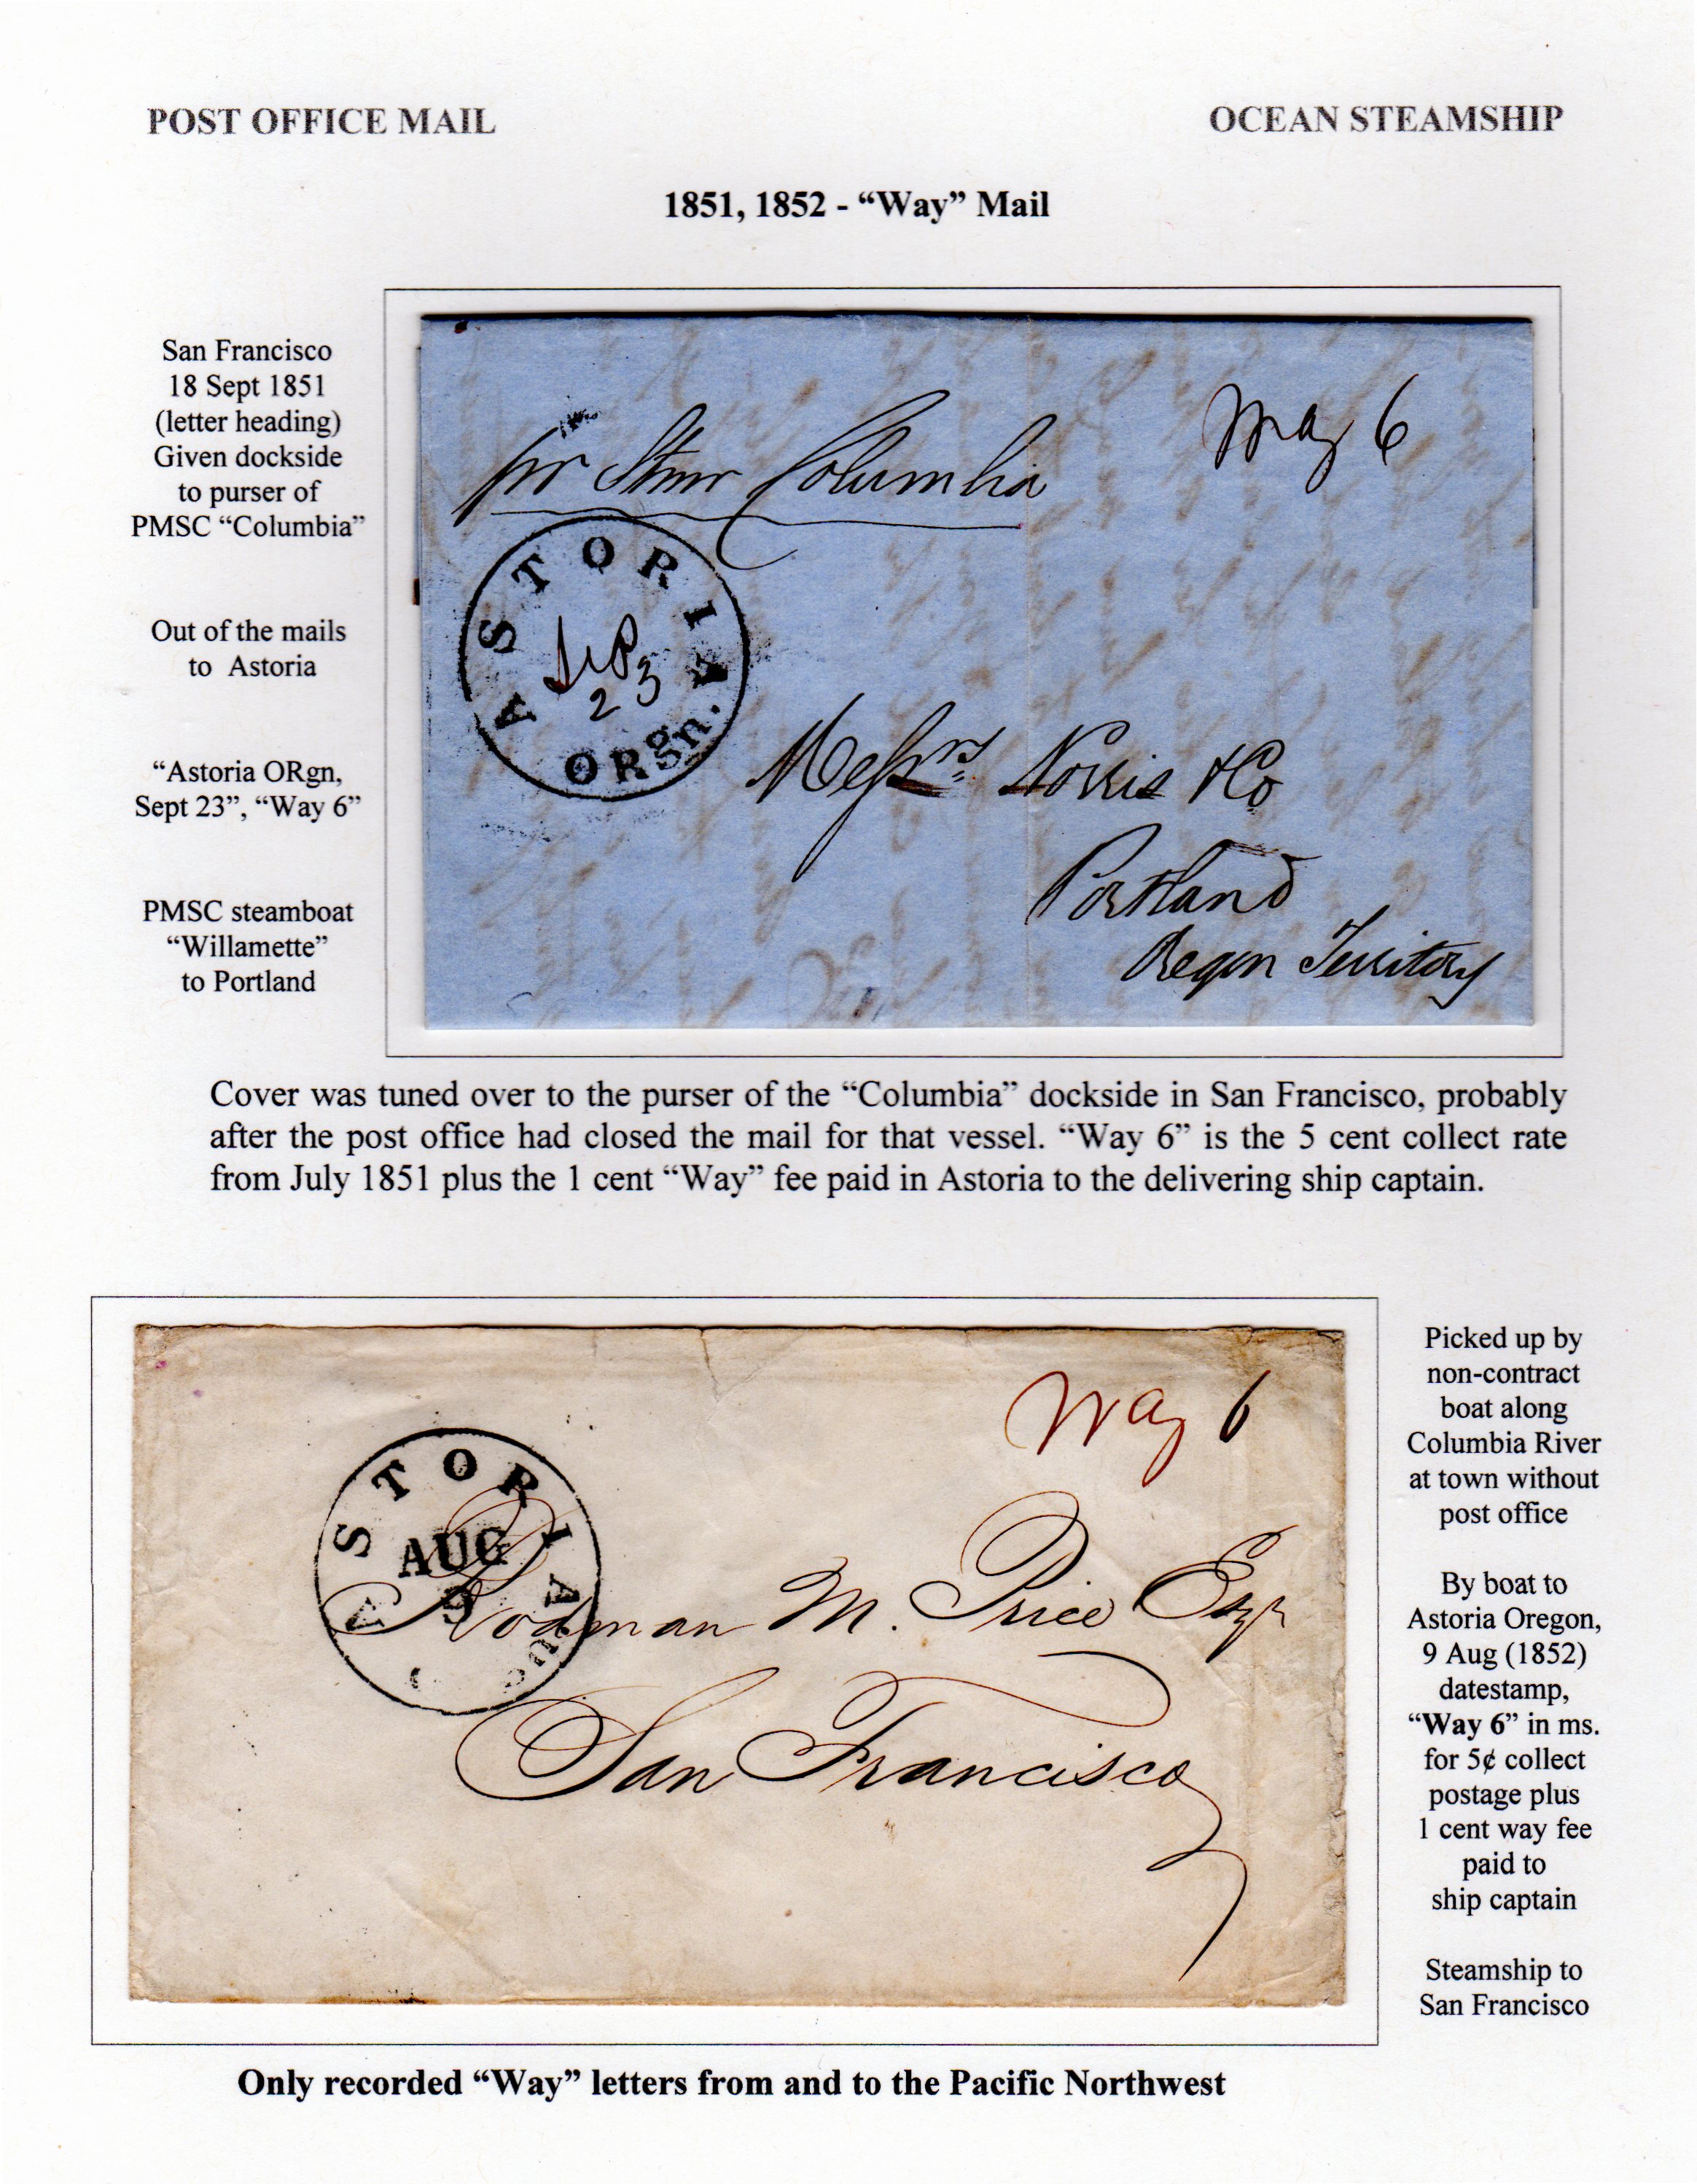 POST OFFICE MAIL
OCEAN STEAMSHIP
1851, 1852 - “Way” Mail
San Francisco
18 Sept 1851
(letter heading)
Given dockside
to purser of
PMSC “Columbia”
Out of the mails
to Astoria
“Astoria ORgn,
Sept 23”, “Way 6”
PMSC steamboat
“Willamette”
to Portland
pr Stmr Columbia
Way 6
ASTORIA
Sep
23
ORgn.
Messrs Norris & Co
Portland
Oregon Territory
Cover was tuned over to the purser of the “Columbia” dockside in San Francisco, probably
after the post office had closed the mail for that vessel. “Way 6” is the 5 cent collect rate
from July 1851 plus the 1 cent “Way” fee paid in Astoria to the delivering ship captain.
Way 6
ASTORIA
AUG
9
Rodman M. Price Esqr
San Francisco
Picked up by
non-contract
boat along
Columbia River
at town without
post office
By boat to
Astoria Oregon,
9 Aug (1852)
datestamp,
“Way 6” in ms.
for 5¢ collect
postage plus
1 cent way fee
paid to
ship captain
Steamship to
San Francisco
Only recorded “Way” letters from and to the Pacific Northwest